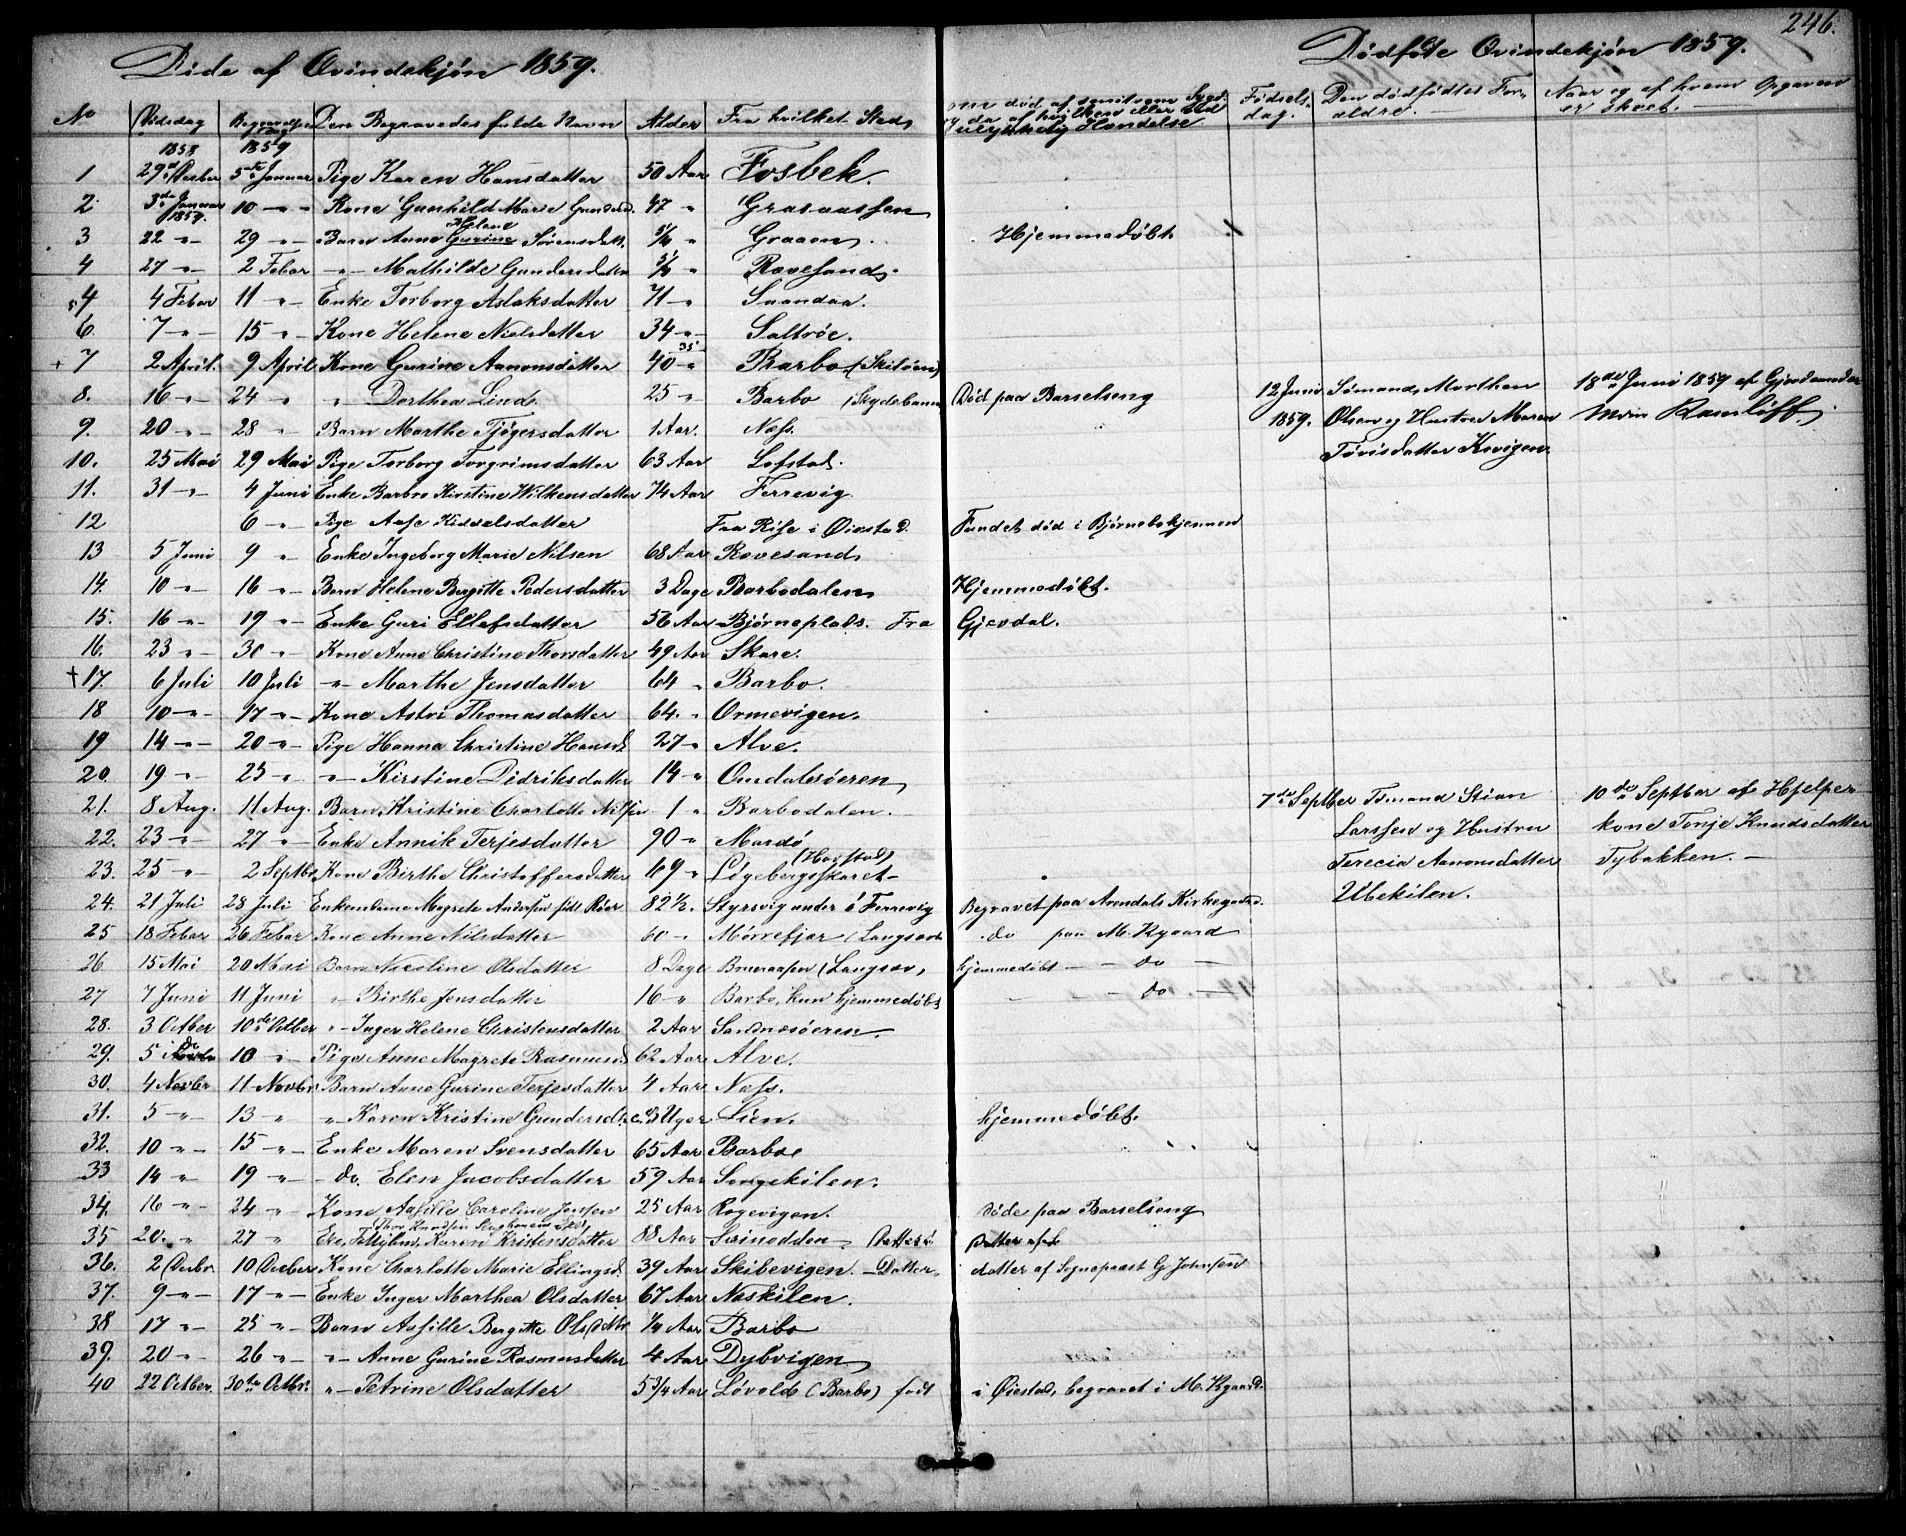 246.
Døde af Qvindekjøn 1859.
Dødføte Qvindekjøn 1859.
No Dødsdag Begravelses Dag Den Begravedes fulde Navn Alder Fra hvilket Sted
Om død af smitsom Sygd. og da af hvilken eller ved ulykkelig Hændelse
Fødsels-dag. Den dødfødtes For-ældre. Naar og af hvem Opgaven er skeet.
1858 1859
1 29de Decber 5te Januar Pige Karen Hansdatter 50 Aar Fosbek.
2 3die Januar 1859. 10 " Kone Gunhild Marie Gundersd. 47 " Graaaassen
3 22 " 29 " Barn Anne Helene Gurine Sørensdatt. " Graaen. Hjemmedøbt.
4 27 " 2 Febar " Mathilde Gundersdatter " Rævesand.
5 4 Febar 11 " Enke Torborg Aslaksdatter 71 " Saandaa.
6. 7 " 15 " Kone Helene Nielsdatter 34 " Saltrøe.
+ 7 2 April. 9 April Kone Gurine Aanonsdatter 40 " 35 Barbo (Skiløen)
8. 16 " 24 " " Dorthea Lind. 25 " Barbo (Skydebanen Død paa Barselseng
9. 20 " 28 " Barn Marthe Tjøgersdatter 1 Aar. Næs.
10. 25 Mai 29 Mai Pige Torborg Torgrimsdatter 63 Aar Lofstad.
11. 31 " 4 Juni Enke Barbro Kirstine Wilkensdatter 74 Aar Ferrevig
12 6 " Pige Aase Kiddelsdatter Fra Rise i Øiestad. Fundet død i Bjørnebokjennen
13 5 Juni 9 " Enke Ingeborg Marie Nilsen 68 Aar Rævesand
14. 10 " 16 " Barn Helene Bergitte Pedersdatter 3 Dage Barbodalen Hjemmedøbt.
15. 16 " 19 " Enke Guri Ellefsdatter 56 Aar Bjørneplads. Fra Gjevdal.
16. 23 " 30 " Kone Anne Christine Thorsdatter 49 Aar Skare.
+ 17. 6 Juli 10 Juli " Marthe Jensdatter 64 " Barbo.
18 10 " 17 " Kone Astri Thomasdatter 64. " Ormevigen.
19 14 " 20 " Pige Hanna Christine Hansd. 27 " Alve.
20. 19 " 25 " " Kirstine Didriksdatter 14 " Omdalsøeren
21. 8 Aug. 11 Aug. Barn Kristine Charlotte Nilsen 1 " Barbodalen.
22. 23 " 27 " Enke Annik Terjesdatter 90 " Mærdø
23. 25 " 2 Septbr Kone Birthe Christoffersdatter 69 " Libergsskaret (Havstad)
24. 21 Juli 28 Juli Enkemadame Magrete Andersen født Røer 82½. Styrsvig under Ferrevig Begravet paa Arendals Kirkegaard.
25 18 Febar 26 Febar Kone Anne Nilsdatter 60 " Mørrefjær (Langsæv do paa M. Kgaard
26 15 Mai 20 Mai Barn Nicoline Olsdatter 8 Dage Brueraaper (Langsæv, hjemmedøbt do
27 7 Juni 11 Juni " Birthe Jensdatter 16 " Barbo, kun hjemmedøbt do
28. 3 Octber 10de Octber " Inger Helene Christensdatter 2 Aar Sandnæsøeren.
29. 5 do 10 " Pige Anne Magrete Rasmusd. 62 Aar Alve.
30. 4 Novbr 11 Novbr. Barn Anne Gurine Terjesdatter 4 Aar Næss.
31. 5 " 13 " " Karen Kristine Gundersdtr. c. 3 Uger Lien. hjemmedøbt.
32. 10 " 15 " Enke Maren Svensdatter 65 Aar Barboe
33 14 " 19 " do. Elen Jacobsdatter 59 Aar Songekilen.
34. 16 " 24 " Kone Aasille Caroline Jensen 25 Aar Rogevigen. døde paa Barselseng
35 20. " 27 " Karen Kristensdatter 88 Aar Svinodden Datter
36. 2 Decbr. 10 Decber Kone Charlotte Marie Ellingsd. 39 Aar Skibevigen. Datter datter af Sognepræst G Johnsen
37. 9 " 17 " Enke Inger Marthea Olsdatter 67 Aar Neskilen.
38 17 " 25 " Barn Aasille Bergitte Olsdtr. ¼ Aar Barbo
39. 20 " 26 " " Anne Gurine Rasmusdatter 4 Aar Dybvigen
40 22 Octber 30te Octbr. " Petrine Olsdatter 5 3/4 Aar Løvold (Barbo) født i Øiestad, begravet i M. Kgaard.
12 Juni 1859. Sømand Marthen Olsen og Hustru Maren Tovisdatter Kvigen.
18de Juni 1859 af Gjordemoder Rosenløff.
7de Septber Tømand Stian Larssen og Hustru Terecia Aanonsdatter Ubekilen.
10de Septber af Hjelperkone Tonje Knudsdatter Tybakken.